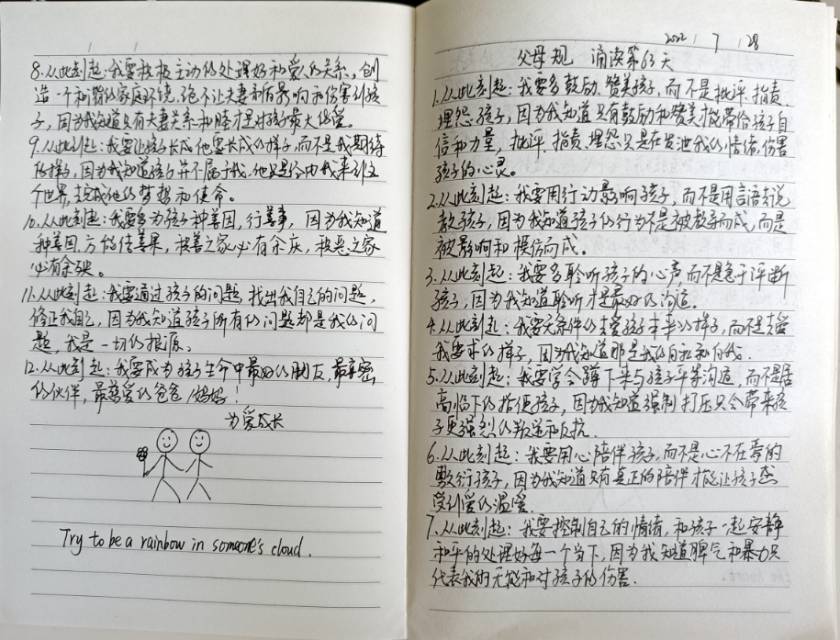 2022 / 7 / 28
父母规 诵读第63天
1.从此刻起:我要多鼓励、赞美孩子,而不是批评、指责、
埋怨孩子,因为我知道只有鼓励和赞美才能带给孩子自
信和力量,批评、指责、埋怨只是在发泄我的情绪,伤害
孩子的心灵。
2.从此刻起:我要用行动影响孩子,而不是用言语去说
教孩子,因为我知道孩子的行为不是被教导而成,而是
被影响和模仿而成。
3.从此刻起:我要多聆听孩子的心声,而不是急于评断
孩子,因为我知道聆听才是最好的沟通。
4.从此刻起:我要无条件的去爱孩子本来的样子,而不是去爱
我要求的样子,因为我知道那是我的自私和自我。
5.从此刻起:我要学会蹲下来与孩子平等沟通,而不是居
高临下的指使孩子,因为我知道强制打压只会带来孩
子更强烈的叛逆和反抗.
6.从此刻起:我要用心陪伴孩子,而不是心不在焉的
敷衍孩子,因为我知道只有真正的陪伴才能让孩子感
受到爱的温暖.
7.从此刻起:我要控制自己的情绪,和孩子一起安静
和平的处理好每一个当下,因为我知道脾气和暴力只
代表我的无能和对孩子的伤害.
8.从此刻起:我要积极主动的处理好和爱人的关系,创
造一个和谐的家庭环境,绝不让夫妻矛盾影响和伤害到孩
子,因为我知道只有夫妻关系和睦才是对孩子最大的爱。
9.从此刻起:我要让孩子长成他要长成的样子,而不是我期待
的样子,因为我知道孩子并不属于我,他只是经由我来到这
个世界,去完成他的梦想和使命。
10.从此刻起:我要多为孩子种善因,行善事,因为我知道
种善因方能结善果,积善之家必有余庆,积恶之家
必有余殃。
11.从此刻起:我要通过孩子的问题,找出我自己的问题,
修正我自己,因为我知道孩子所有的问题都是我的问
题,我是一切的根源。
12.从此刻起:我要成为孩子生命中最好的朋友,最亲密
的伙伴,最慈爱的爸爸/妈妈!
为爱成长
Try to be a rainbow in someone's cloud.